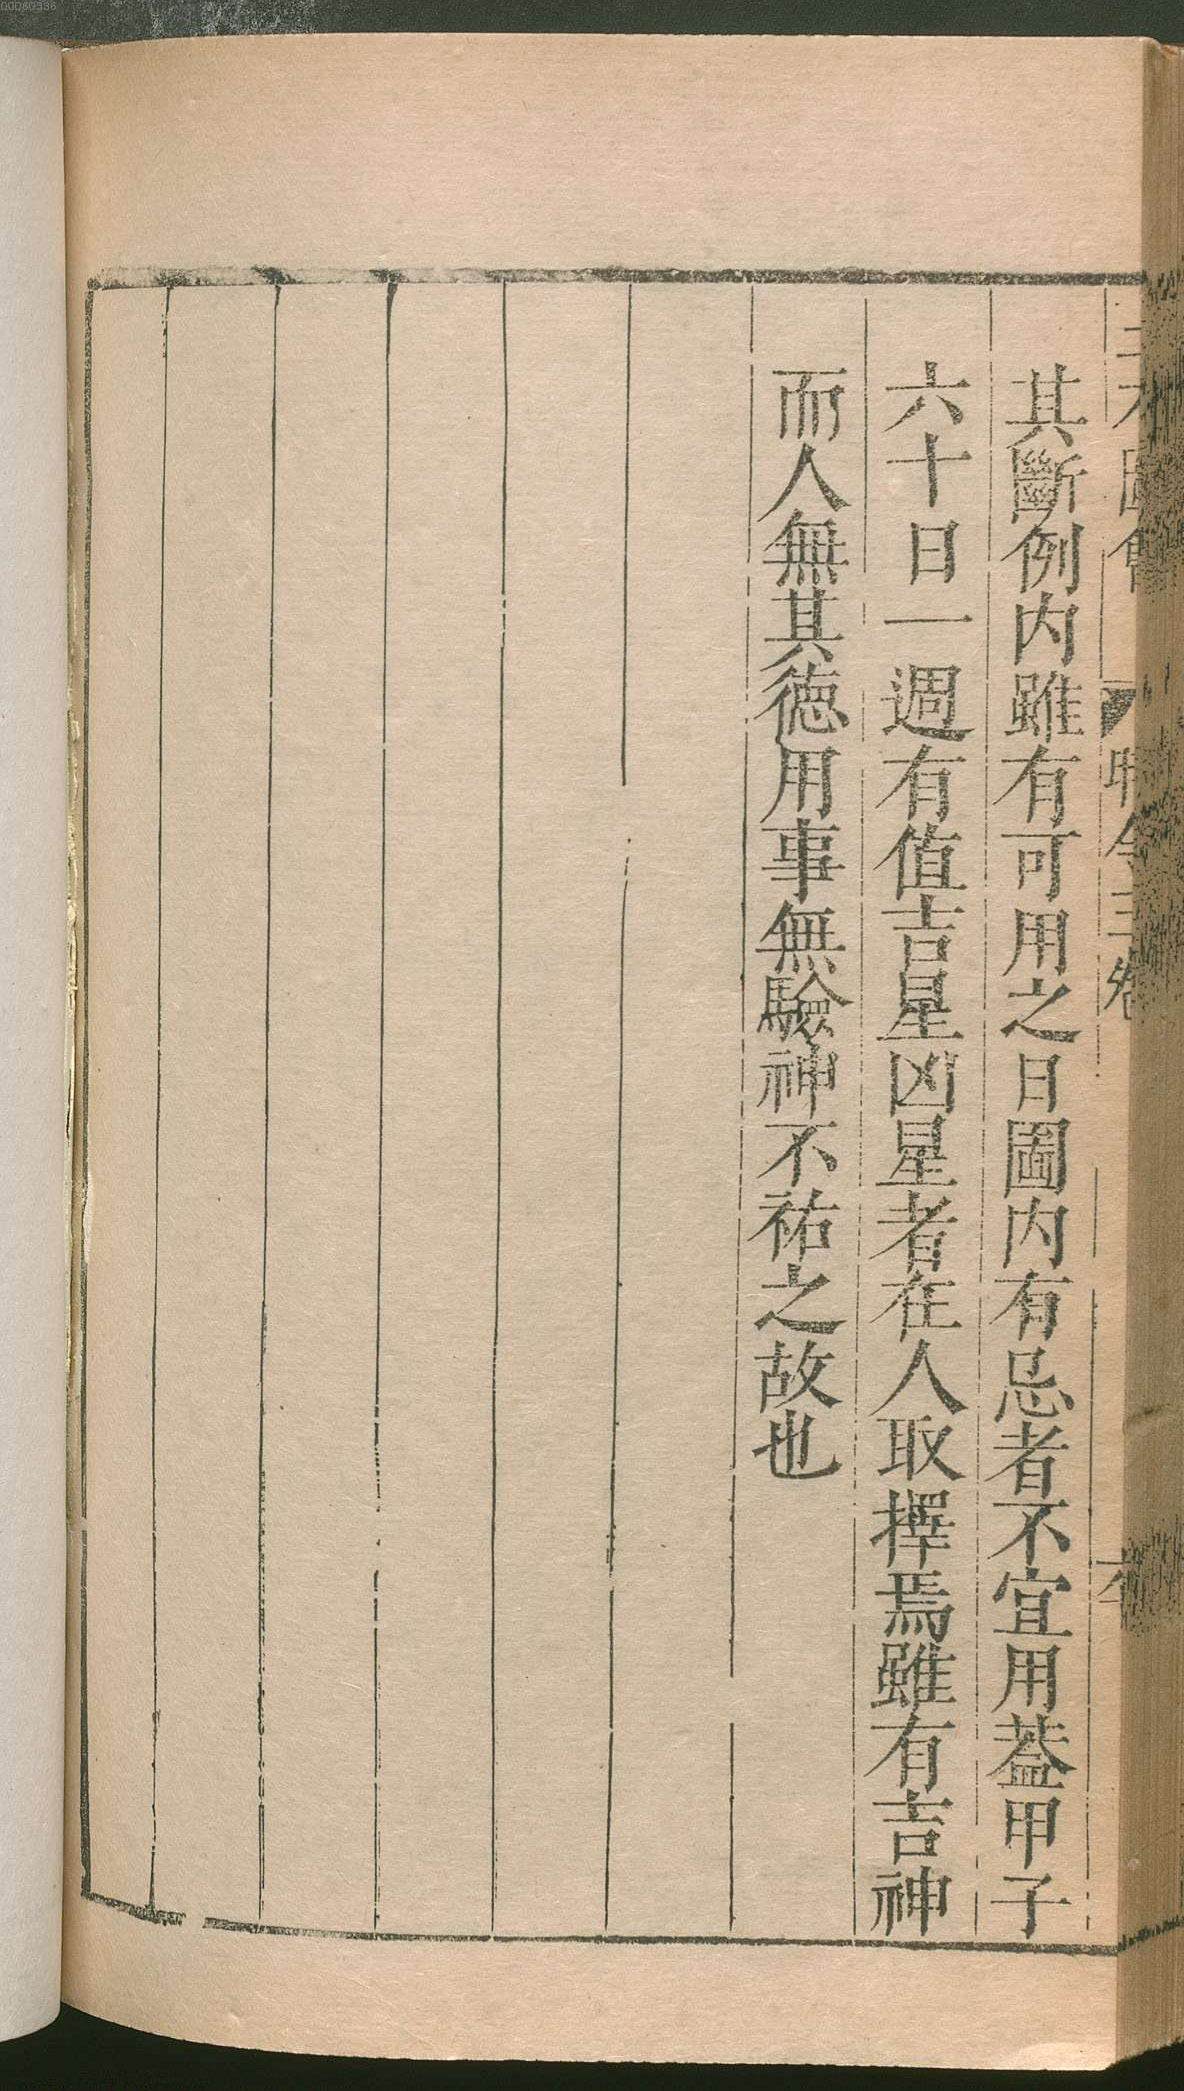 其斷例内雖有可用之日圖内有忌者不宜用葢甲子
六十日一週有值吉星凶星者在人取擇焉雖有吉神
而人無其德用事無驗神不祐之故也
00080336